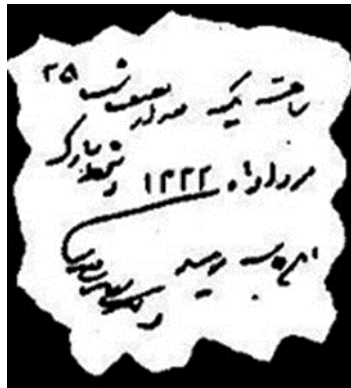 ساعت یک بعد از نصف شب ۲۵
مرداد ماه ۱۳۳۲ دستخط مبارک
باینجانب رسید
دکتر محمد مصدق